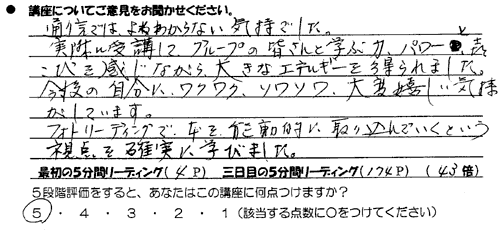 ● 講座についてご意見をお聞かせください。
通信では、よくわからない気持でした。
実際に受講してグループの皆さんと学ぶ力、パワー、喜
こびを感じながら、大きなエネルギーを得られました。
今後の自分に、ワクワク、ソワソワ、大変嬉しい気持
がしています。
フォトリーディングで、本を能動的に取り込んでいくという
視点を確実に学びました。
最初の5分間リーディング(4P) 三日目の5分間リーディング(174P) (43倍)
5段階評価をすると、あなたはこの講座に何点つけますか?
5・4・3・2・1(該当する点数に○をつけてください)